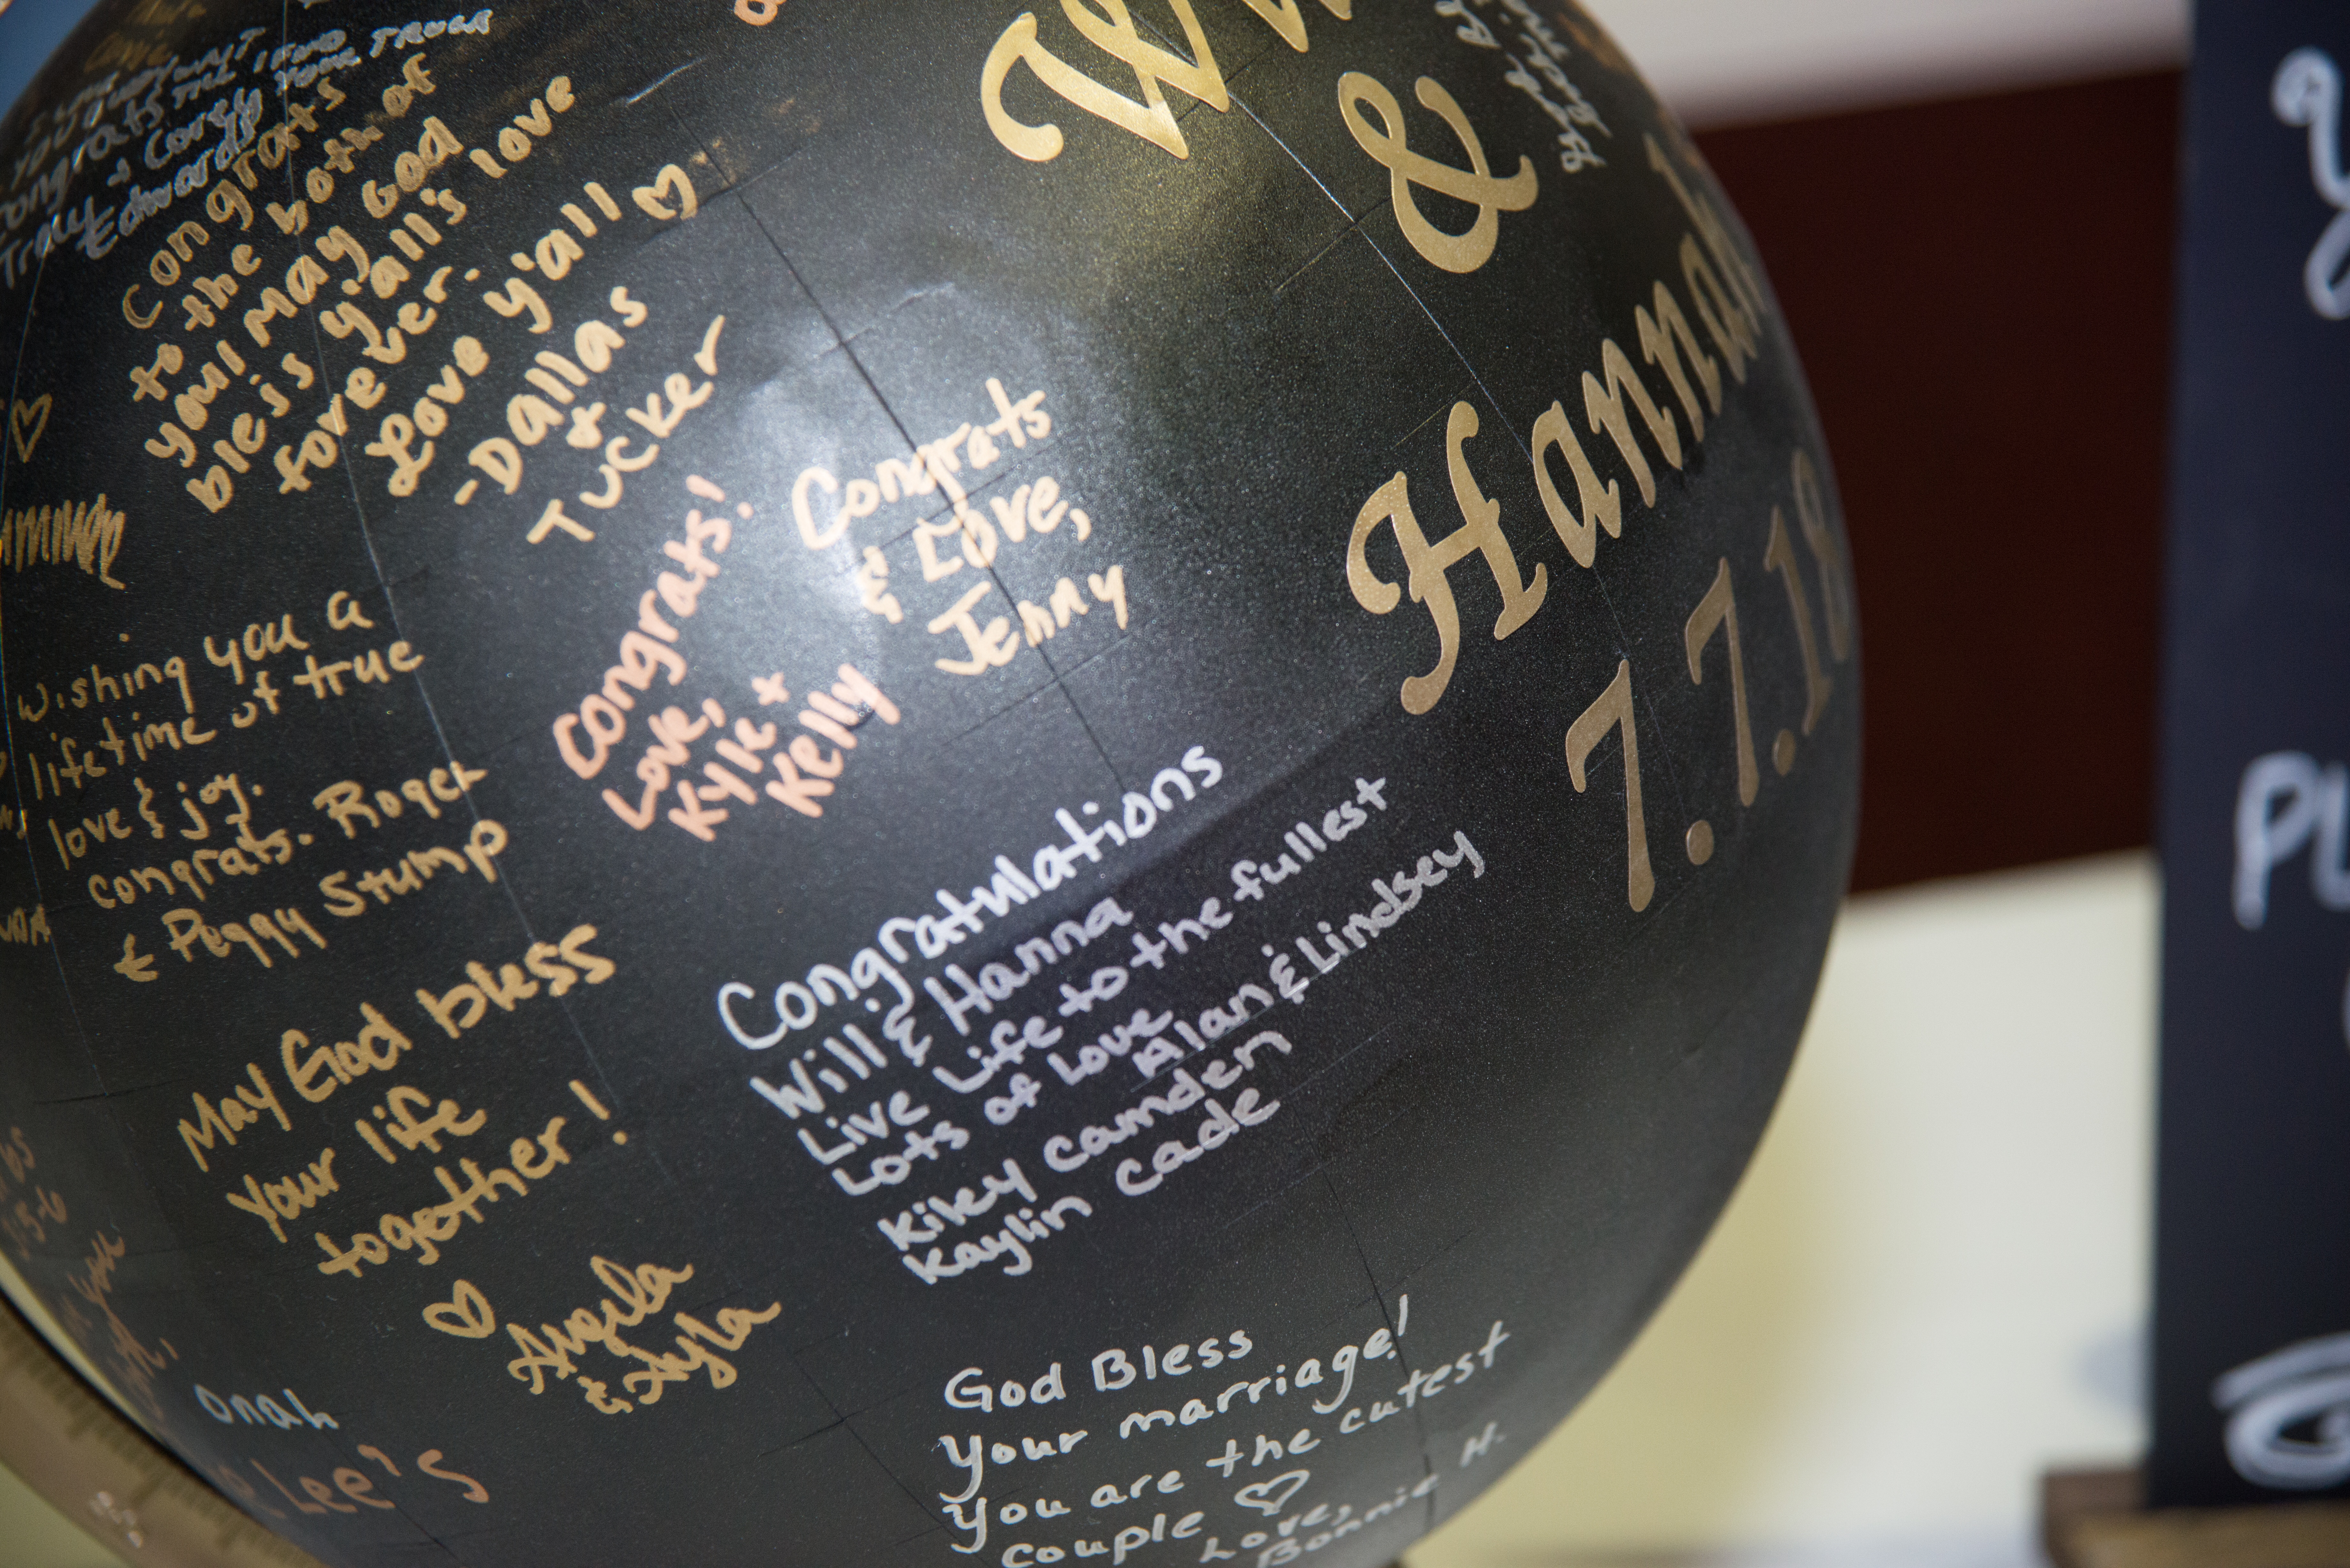 &
Hannah
7.7.18
congrats
Troy + Corey
Edwards
Congrats
to the both of
you! May God
bleis y'all's love
forever.
Love y'all ♡
-Dallas
+
Tucker
Congrats!
Love,
Kyle +
Kelly
Congrats
& Love,
Jenny
wishing you a
lifetime of true
love & joy.
congrats. Roger
& Peggy Stump
Congratulations
Will & Hanna
Live Life to the fullest
Lots of Love
Alan & Lindsey
Kiley camden
Kaylin cade
May God bless
your life
together!
♡ Angela
&
God Bless
Your marriage!
You are the cutest
couple ♡
Love,
Bonnie H.
Lee's